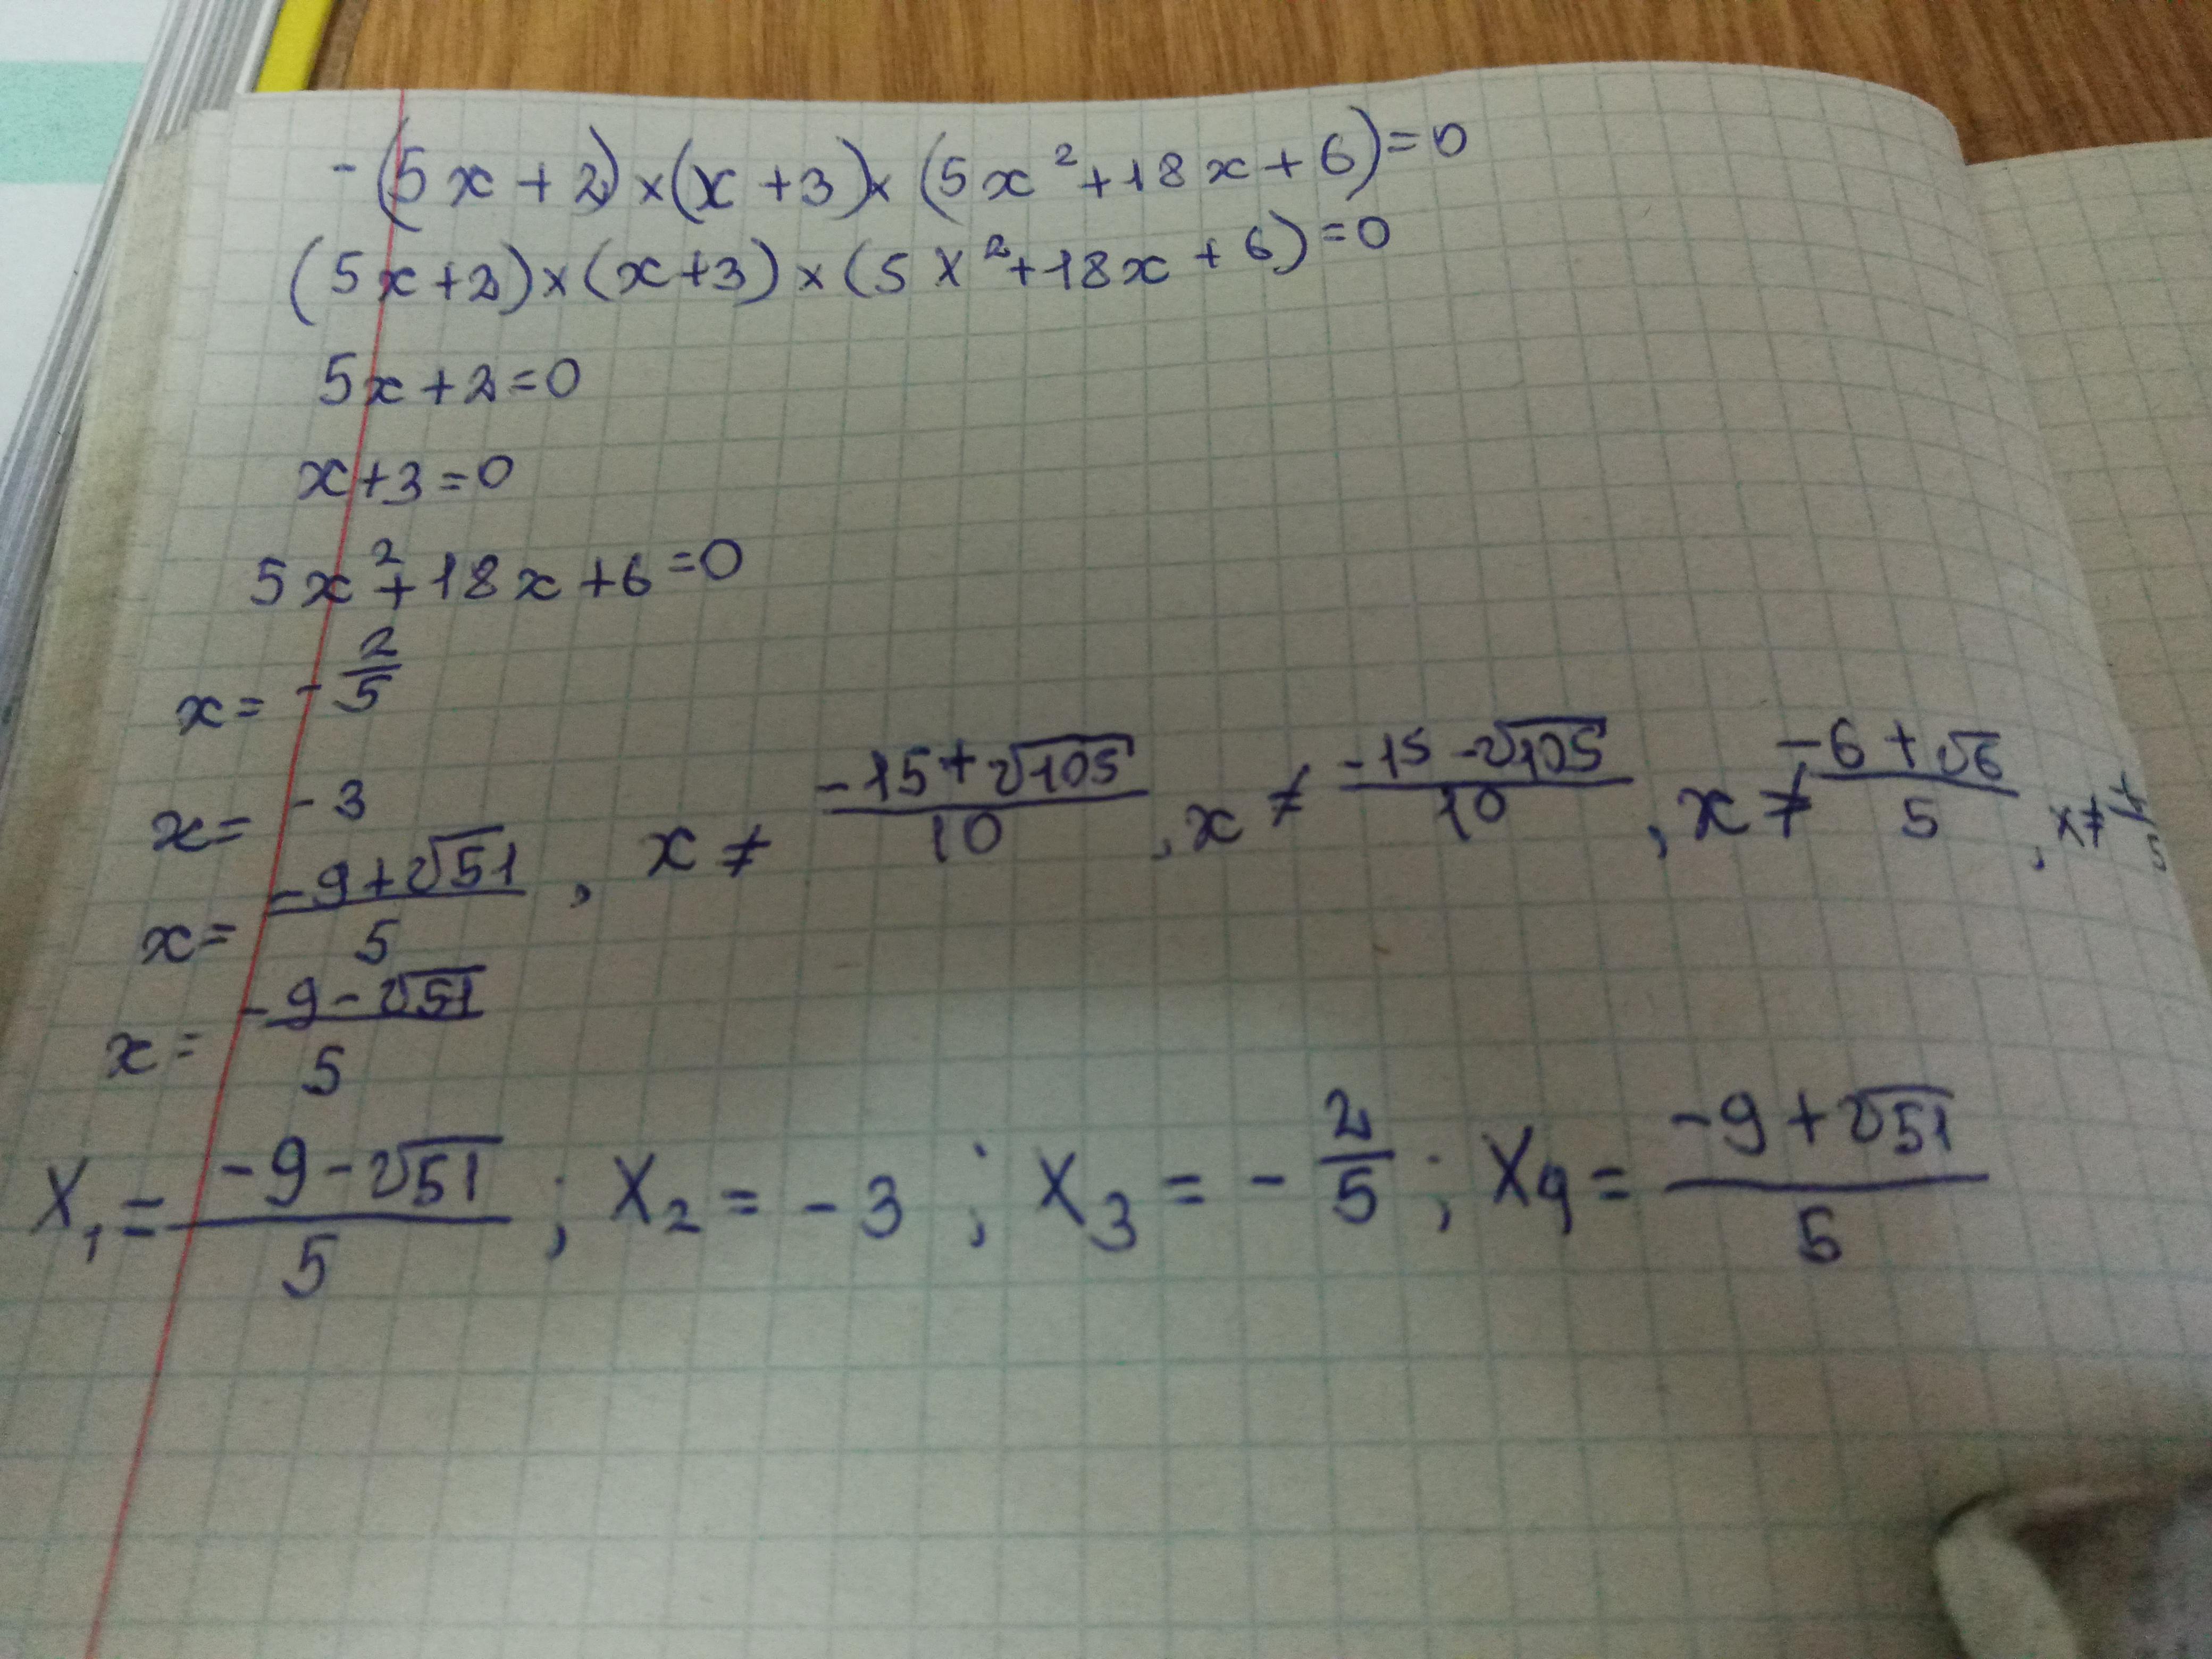 -(5x+2)×(x+3)×(5x²+18x+6)=0
(5x+2)×(x+3)×(5x²+18x+6)=0
5x+2=0
x+3=0
5x²+18x+6=0
x=-2/5
x=-3
x=(-9+√51)/5, x≠(-15+√105)/10, x≠(-15-√105)/10, x≠(-6+√6)/5, x≠
x=(-9-√51)/5
X₁=(-9-√51)/5; X₂=-3; X₃=-2/5; X₄=(-9+√51)/5